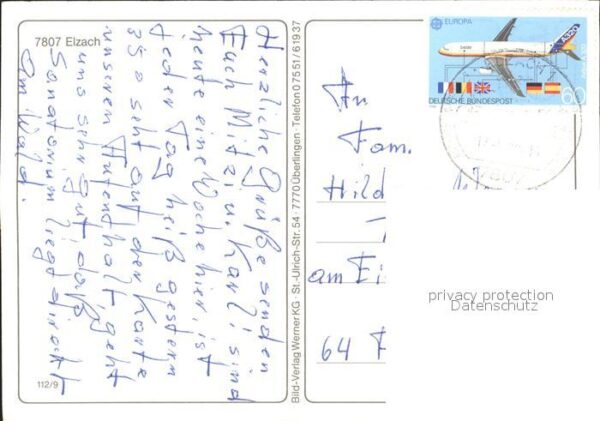 7807 Elzach
Herzliche Grüße senden
Euch Mitzi u. Karl! sind
heute eine Woche hier, ist
jeder Tag heiß gestern
35° seht auf der Karte
unseren Aufenthalt, geht
uns sehr gut, das
Sanatorium liegt direckt
am Wald.
112/9
Bild-Verlag Werner KG · St.-Ulrich-Str. 54 · 7770 Überlingen · Telefon 0 75 51 / 6 19 37
EUROPA
A320
DEUTSCHE BUNDESPOST
60
7807
An
Fam.
Hild
am Ei
64 F
privacy protection
Datenschutz